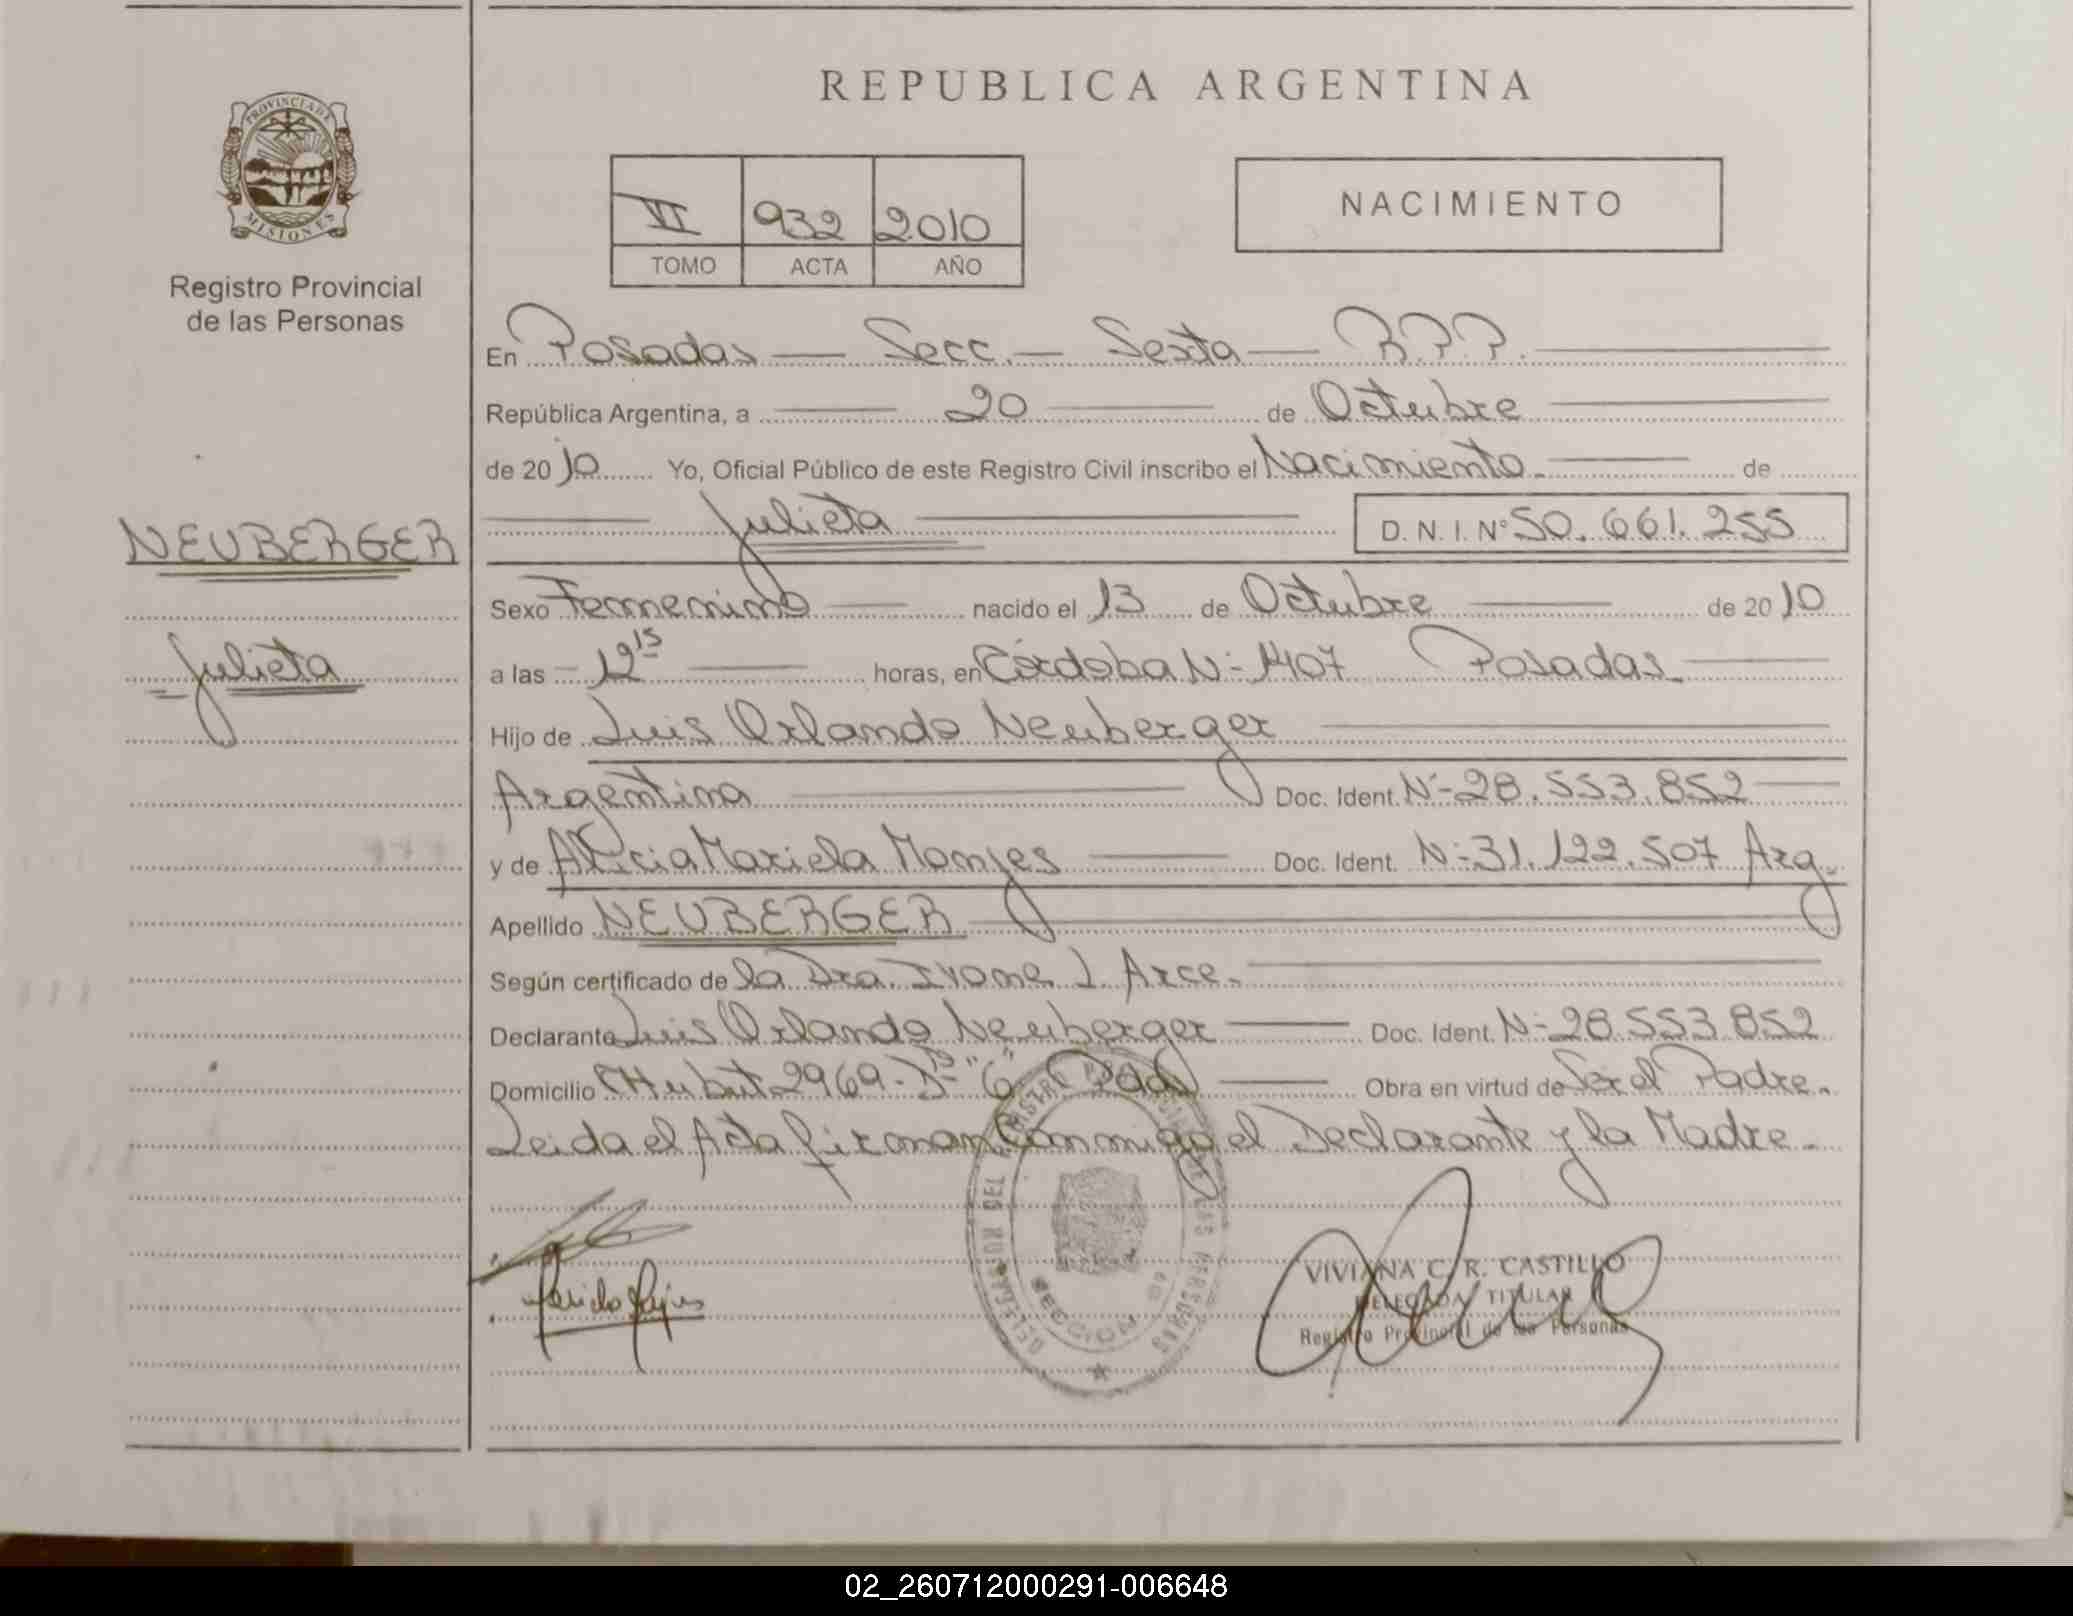 REPUBLICA ARGENTINA
PROVINCIA DE
MISIONES
Registro Provincial
de las Personas
VI 932 2010
TOMO ACTA AÑO
NACIMIENTO
En Posadas — Secc. — Sexta — R.P.P.
República Argentina, a 20 de Octubre
de 2010 Yo, Oficial Público de este Registro Civil inscribo el Nacimiento. de
Julieta D.N.I. Nº 50.661.255
NEUBERGER
Julieta
Sexo Femenino nacido el 13 de Octubre de 2010
a las 12 15 horas, en Córdoba Nº 1407 Posadas
Hijo de Luis Orlando Neuberger
Argentina Doc. Ident. Nº 28.553.852
y de Alicia Mariela Monjes Doc. Ident. Nº 31.122.507 Arg.
Apellido NEUBERGER
Según certificado de la Dra. Ivone J. Arce.
Declarante Luis Orlando Neuberger Doc. Ident. Nº 28.553.852
Domicilio CHubut 2969 - Dº "6" Pdas Obra en virtud de Ser el Padre.
Leida el Acta firman Conmigo el Declarante y la Madre.
VIVIANA C. R. CASTILLO
DELEGADA TITULAR
Registro Provincial de las Personas
02_260712000291-006648